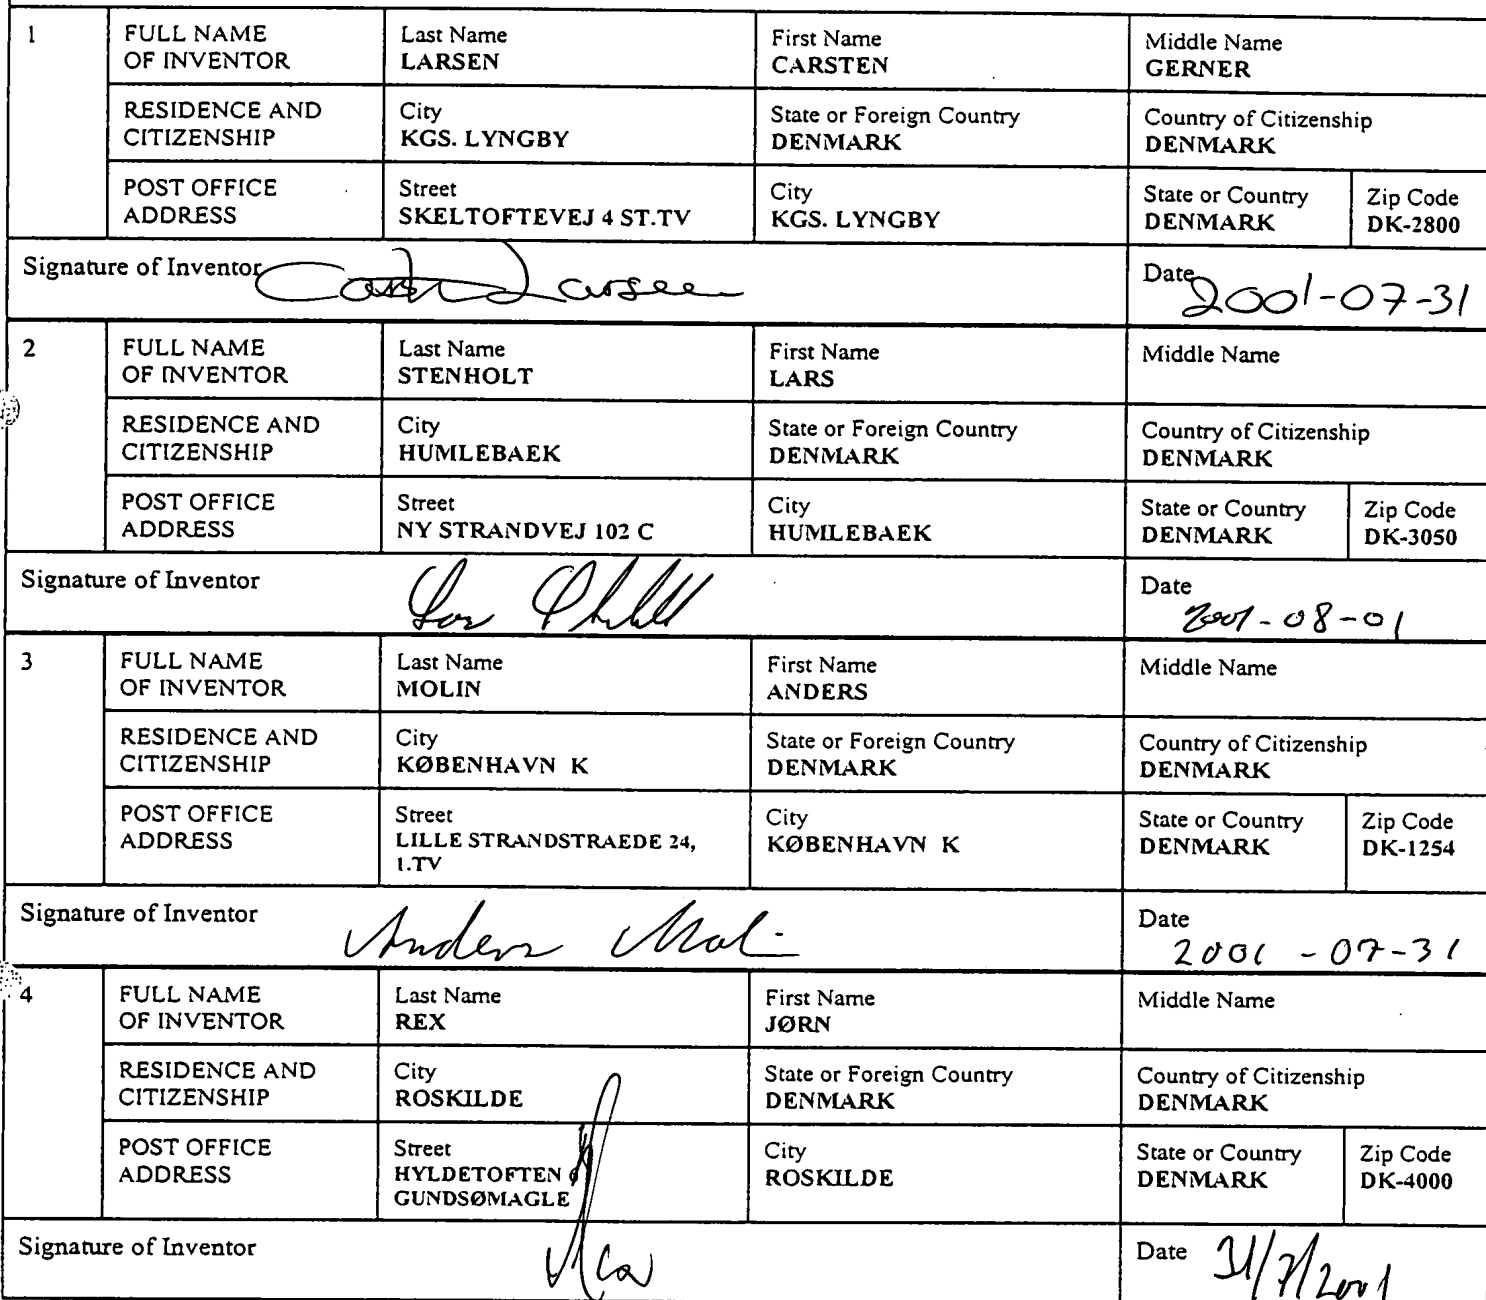 1
FULL NAME OF INVENTOR
Last Name
LARSEN
First Name
CARSTEN
Middle Name
GERNER
RESIDENCE AND CITIZENSHIP
City
KGS. LYNGBY
State or Foreign Country
DENMARK
Country of Citizenship
DENMARK
POST OFFICE ADDRESS
Street
SKELTOFTEVEJ 4 ST.TV
City
KGS. LYNGBY
State or Country
DENMARK
Zip Code
DK-2800
Signature of Inventor
Carsten Larsen
Date
2001-07-31
2
FULL NAME OF INVENTOR
Last Name
STENHOLT
First Name
LARS
Middle Name
RESIDENCE AND CITIZENSHIP
City
HUMLEBAEK
State or Foreign Country
DENMARK
Country of Citizenship
DENMARK
POST OFFICE ADDRESS
Street
NY STRANDVEJ 102 C
City
HUMLEBAEK
State or Country
DENMARK
Zip Code
DK-3050
Signature of Inventor
Date
2001-08-01
3
FULL NAME OF INVENTOR
Last Name
MOLIN
First Name
ANDERS
Middle Name
RESIDENCE AND CITIZENSHIP
City
KØBENHAVN K
State or Foreign Country
DENMARK
Country of Citizenship
DENMARK
POST OFFICE ADDRESS
Street
LILLE STRANDSTRAEDE 24,
1.TV
City
KØBENHAVN K
State or Country
DENMARK
Zip Code
DK-1254
Signature of Inventor
Anders Molin
Date
2001-07-31
4
FULL NAME OF INVENTOR
Last Name
REX
First Name
JØRN
Middle Name
RESIDENCE AND CITIZENSHIP
City
ROSKILDE
State or Foreign Country
DENMARK
Country of Citizenship
DENMARK
POST OFFICE ADDRESS
Street
HYLDETOFTEN
GUNDSØMAGLE
City
ROSKILDE
State or Country
DENMARK
Zip Code
DK-4000
Signature of Inventor
Date
31/7/2001